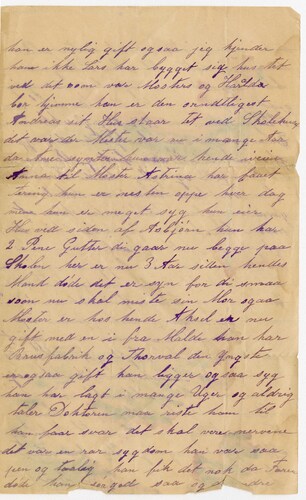 han er nylig gift ogsaa jeg kjender
ham ikke Lars har bygget sig hus tet
ved det som var Mosters og Halda
bor hjemme han er den
Andreas sit Hus staar tet ved Skolehus
det var der Moster var en i mange Aar
da hun hende
Anna til Moster Astrina har faaet
tæring hun er nesten oppe hver dag
men hun er meget syg hun eier
Hus ved siden af Asbjørn hun har
2 Pene Gutter de gaar nu begge paa
Skolen her er nu 3 Aar siden hendes
Mand døde det er syn for de smaa
som nu skal miste sin Mor ogsaa
Moster er hos hende Aksel er nu
gift med en i fra Molde han har
fabrik og Thorval den yngste
er ogsaa gift han bygger ogsaa syg
han har lagt i mange Uger og aldrig
taler Doktoren man
han faar svar det skal vere nervene
det var en rar sygdom han var saa
og han fik det nok da Faren
døde han sørged saa og